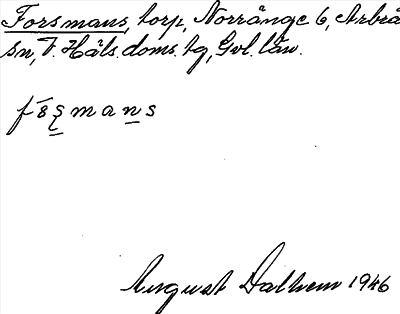 Forsmans, torp, Norränge 6, Arbrå
sn, V. Häls. doms. tg, Gvl. län.
fŏs̱mans
August Dalhem 1946